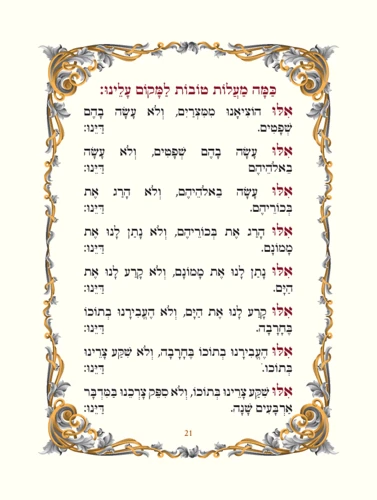 כַּמָּה מַעֲלוֹת טוֹבוֹת לַמָּקוֹם עָלֵינוּ:
אִלּוּ הוֹצִיאָנוּ מִמִּצְרַיִם, וְלֹא עָשָׂה בָהֶם
שְׁפָטִים. דַּיֵּנוּ:
אִלּוּ עָשָׂה בָהֶם שְׁפָטִים, וְלֹא עָשָׂה
בֵאלֹהֵיהֶם דַּיֵּנוּ:
אִלּוּ עָשָׂה בֵאלֹהֵיהֶם, וְלֹא הָרַג אֶת
בְּכוֹרֵיהֶם. דַּיֵּנוּ:
אִלּוּ הָרַג אֶת בְּכוֹרֵיהֶם, וְלֹא נָתַן לָנוּ אֶת
מָמוֹנָם. דַּיֵּנוּ:
אִלּוּ נָתַן לָנוּ אֶת מָמוֹנָם, וְלֹא קָרַע לָנוּ אֶת
הַיָּם. דַּיֵּנוּ:
אִלּוּ קָרַע לָנוּ אֶת הַיָּם, וְלֹא הֶעֱבִירָנוּ בְתוֹכוֹ
בֶּחָרָבָה. דַּיֵּנוּ:
אִלּוּ הֶעֱבִירָנוּ בְתוֹכוֹ בֶּחָרָבָה, וְלֹא שִׁקַּע צָרֵינוּ
בְּתוֹכוֹ. דַּיֵּנוּ:
אִלּוּ שִׁקַּע צָרֵינוּ בְּתוֹכוֹ, וְלֹא סִפֵּק צָרְכֵנוּ בַּמִּדְבָּר
אַרְבָּעִים שָׁנָה. דַּיֵּנוּ:
21